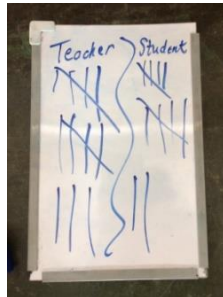 Teacher Student